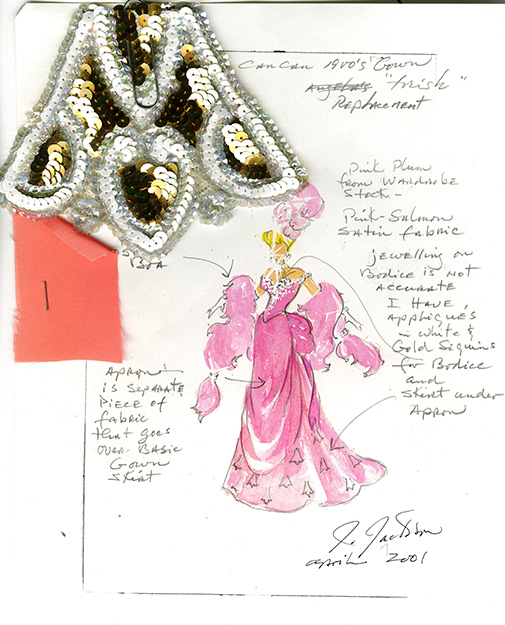 CanCan 1900's Gown
Angela's "Trish"
Replacement
Pink Plum
from Wardrobe
Stock -
Pink-Salmon
Satin fabric
jewelling on
Bodice is not
accurate
I have
appliques
in white &
Gold Sequins
for Bodice
and
Skirt under
Apron
Boa
Apron
is separate
piece of
fabric
that goes
over Basic
Gown
Skirt
Jackson
april 2001